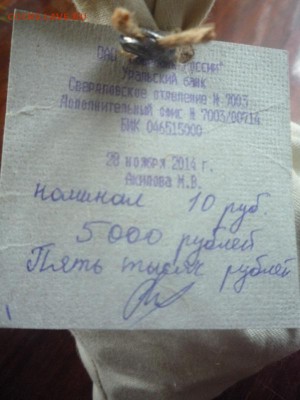 ОАО "Сбербанк России"
Уральский банк
Свердловское отделение № 7003
Дополнительный офис № 7003/00714
БИК 046515000
28 ноября 2014 г.
М.В.
номинал 10 руб.
5000 рублей
Пять тысяч рублей